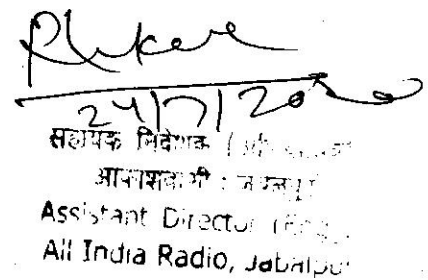 24/7/20
सहायक निदेशक
आकाशवाणी : जबलपुर
Assistant Director
All India Radio, Jabalpur